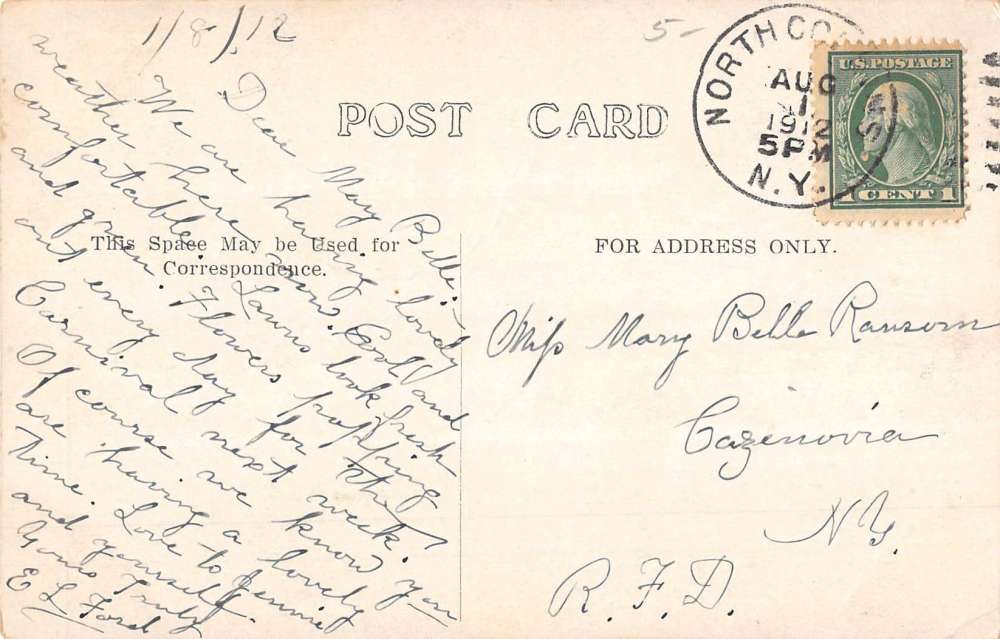 1/8/12
5-
POST CARD
This Space May be Used for
Correspondence.
FOR ADDRESS ONLY.
NORTH CO
AUG
1
1912
5 PM
N.Y.
U.S. POSTAGE
1 CENT 1
Dear Mary Belle:
We are having lovely
weather here now. Cool and
comfortable. Lawns look fresh
and green. Flowers popping
out every day for the
Carnival next week.
Of course we know you
are having a lovely
time. Love to Jennie
and yourself.
Yours Truly
E L Ford
Miss Mary Belle Ransom
Cazenovia
N.Y.
R.F.D.